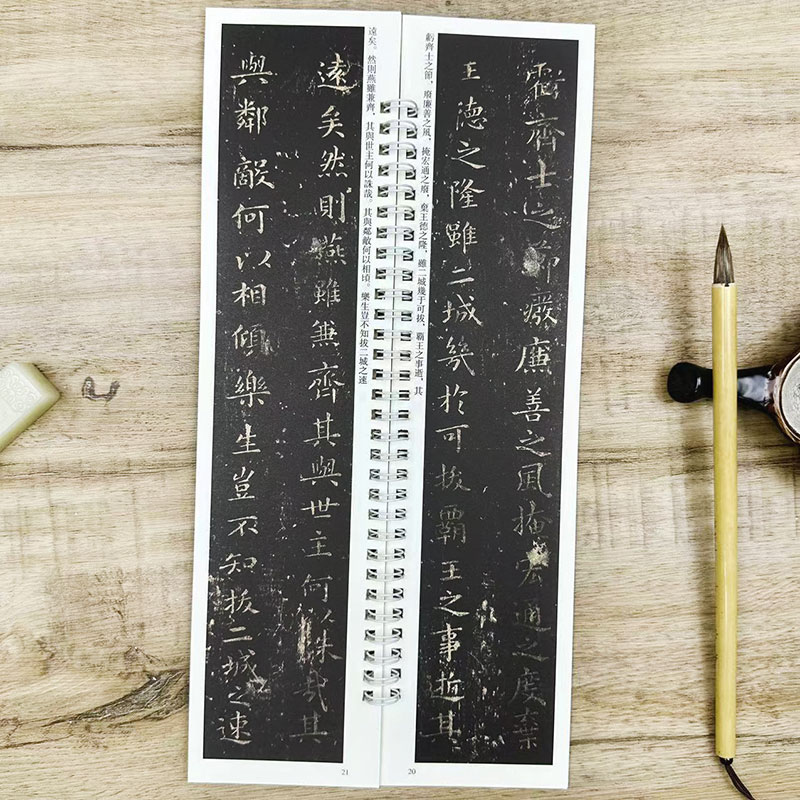 虧齊士之節廢廉善之風掩宏通之度棄
王德之隆雖二城幾於可拔霸王之事逝其
虧齊士之節，廢廉善之風，掩宏通之廢，棄王德之隆，雖二城幾于可拔，霸王之事逝，其
20
遠矣然則燕雖兼齊其與世主何以殊哉其
與鄰敵何以相傾樂生豈不知拔二城之速
遠矣。然則燕雖兼齊，其與世主何以誅哉。其與鄰敵何以相頃。樂生豈不知拔二城之速
21